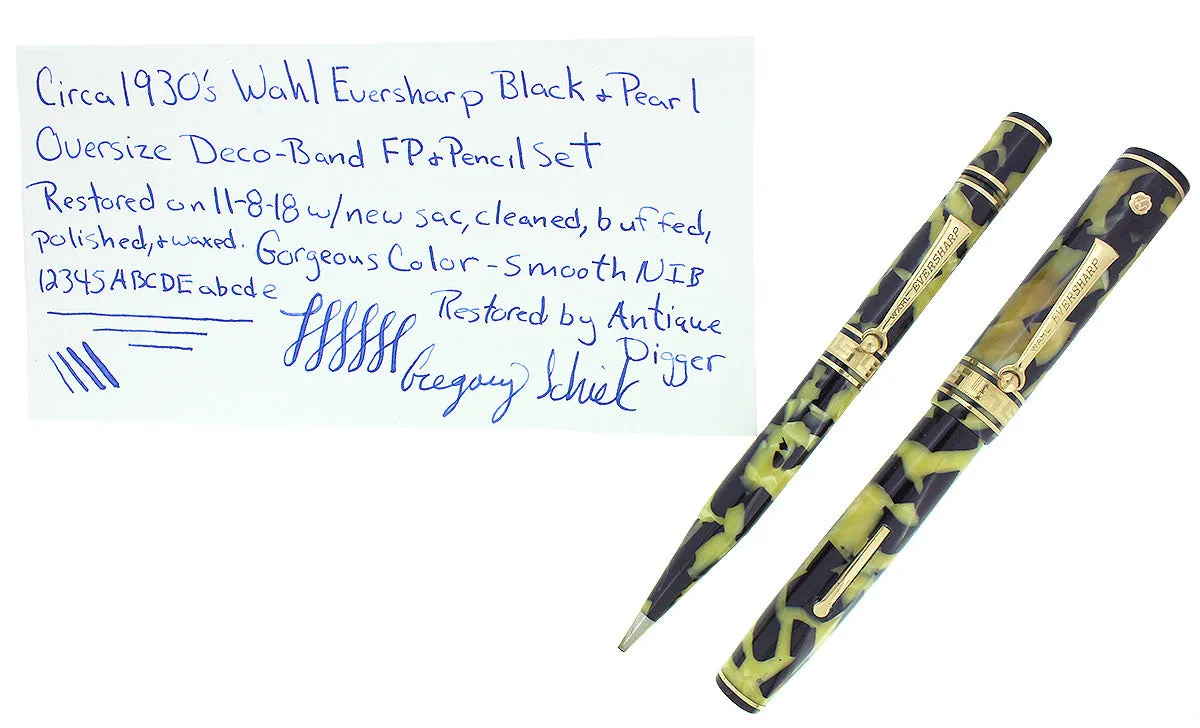 Circa 1930's Wahl Eversharp Black & Pearl
Oversize Deco-Band FP & Pencil Set
Restored on 11-8-18 w/new sac, cleaned, buffed,
polished, & waxed. Gorgeous Color - Smooth NIB
12345 ABCDE abcde
Restored by Antique
Digger
Gregory
WAHL EVERSHARP
WAHL EVERSHARP